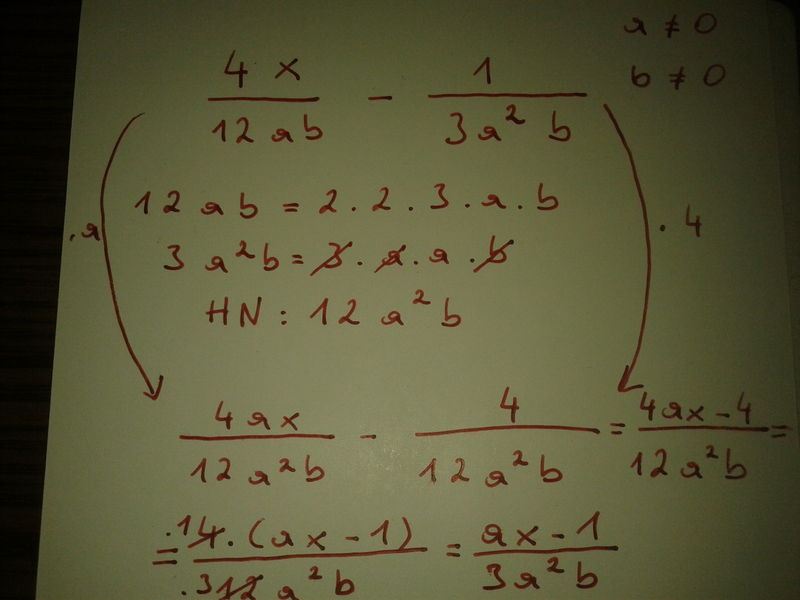 a ≠ 0
b ≠ 0
4x/12ab - 1/3a²b
12ab = 2.2.3.a.b
3a²b = 3.a.a.b
HN: 12a²b
.a
.4
4ax/12a²b - 4/12a²b = 4ax-4/12a²b =
= .14.(ax-1)/.312a²b = ax-1/3a²b